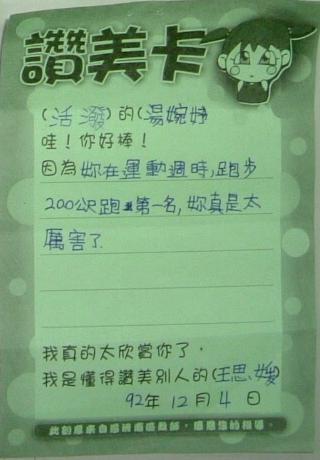 讚美卡
(活潑)的(湯婉婷)
哇！你好棒！
因為妳在運動週時,跑步
200公尺跑第一名,妳真是太
厲害了.
我真的太欣賞你了，
我是懂得讚美別人的(王思媛)
92年 12月 4日